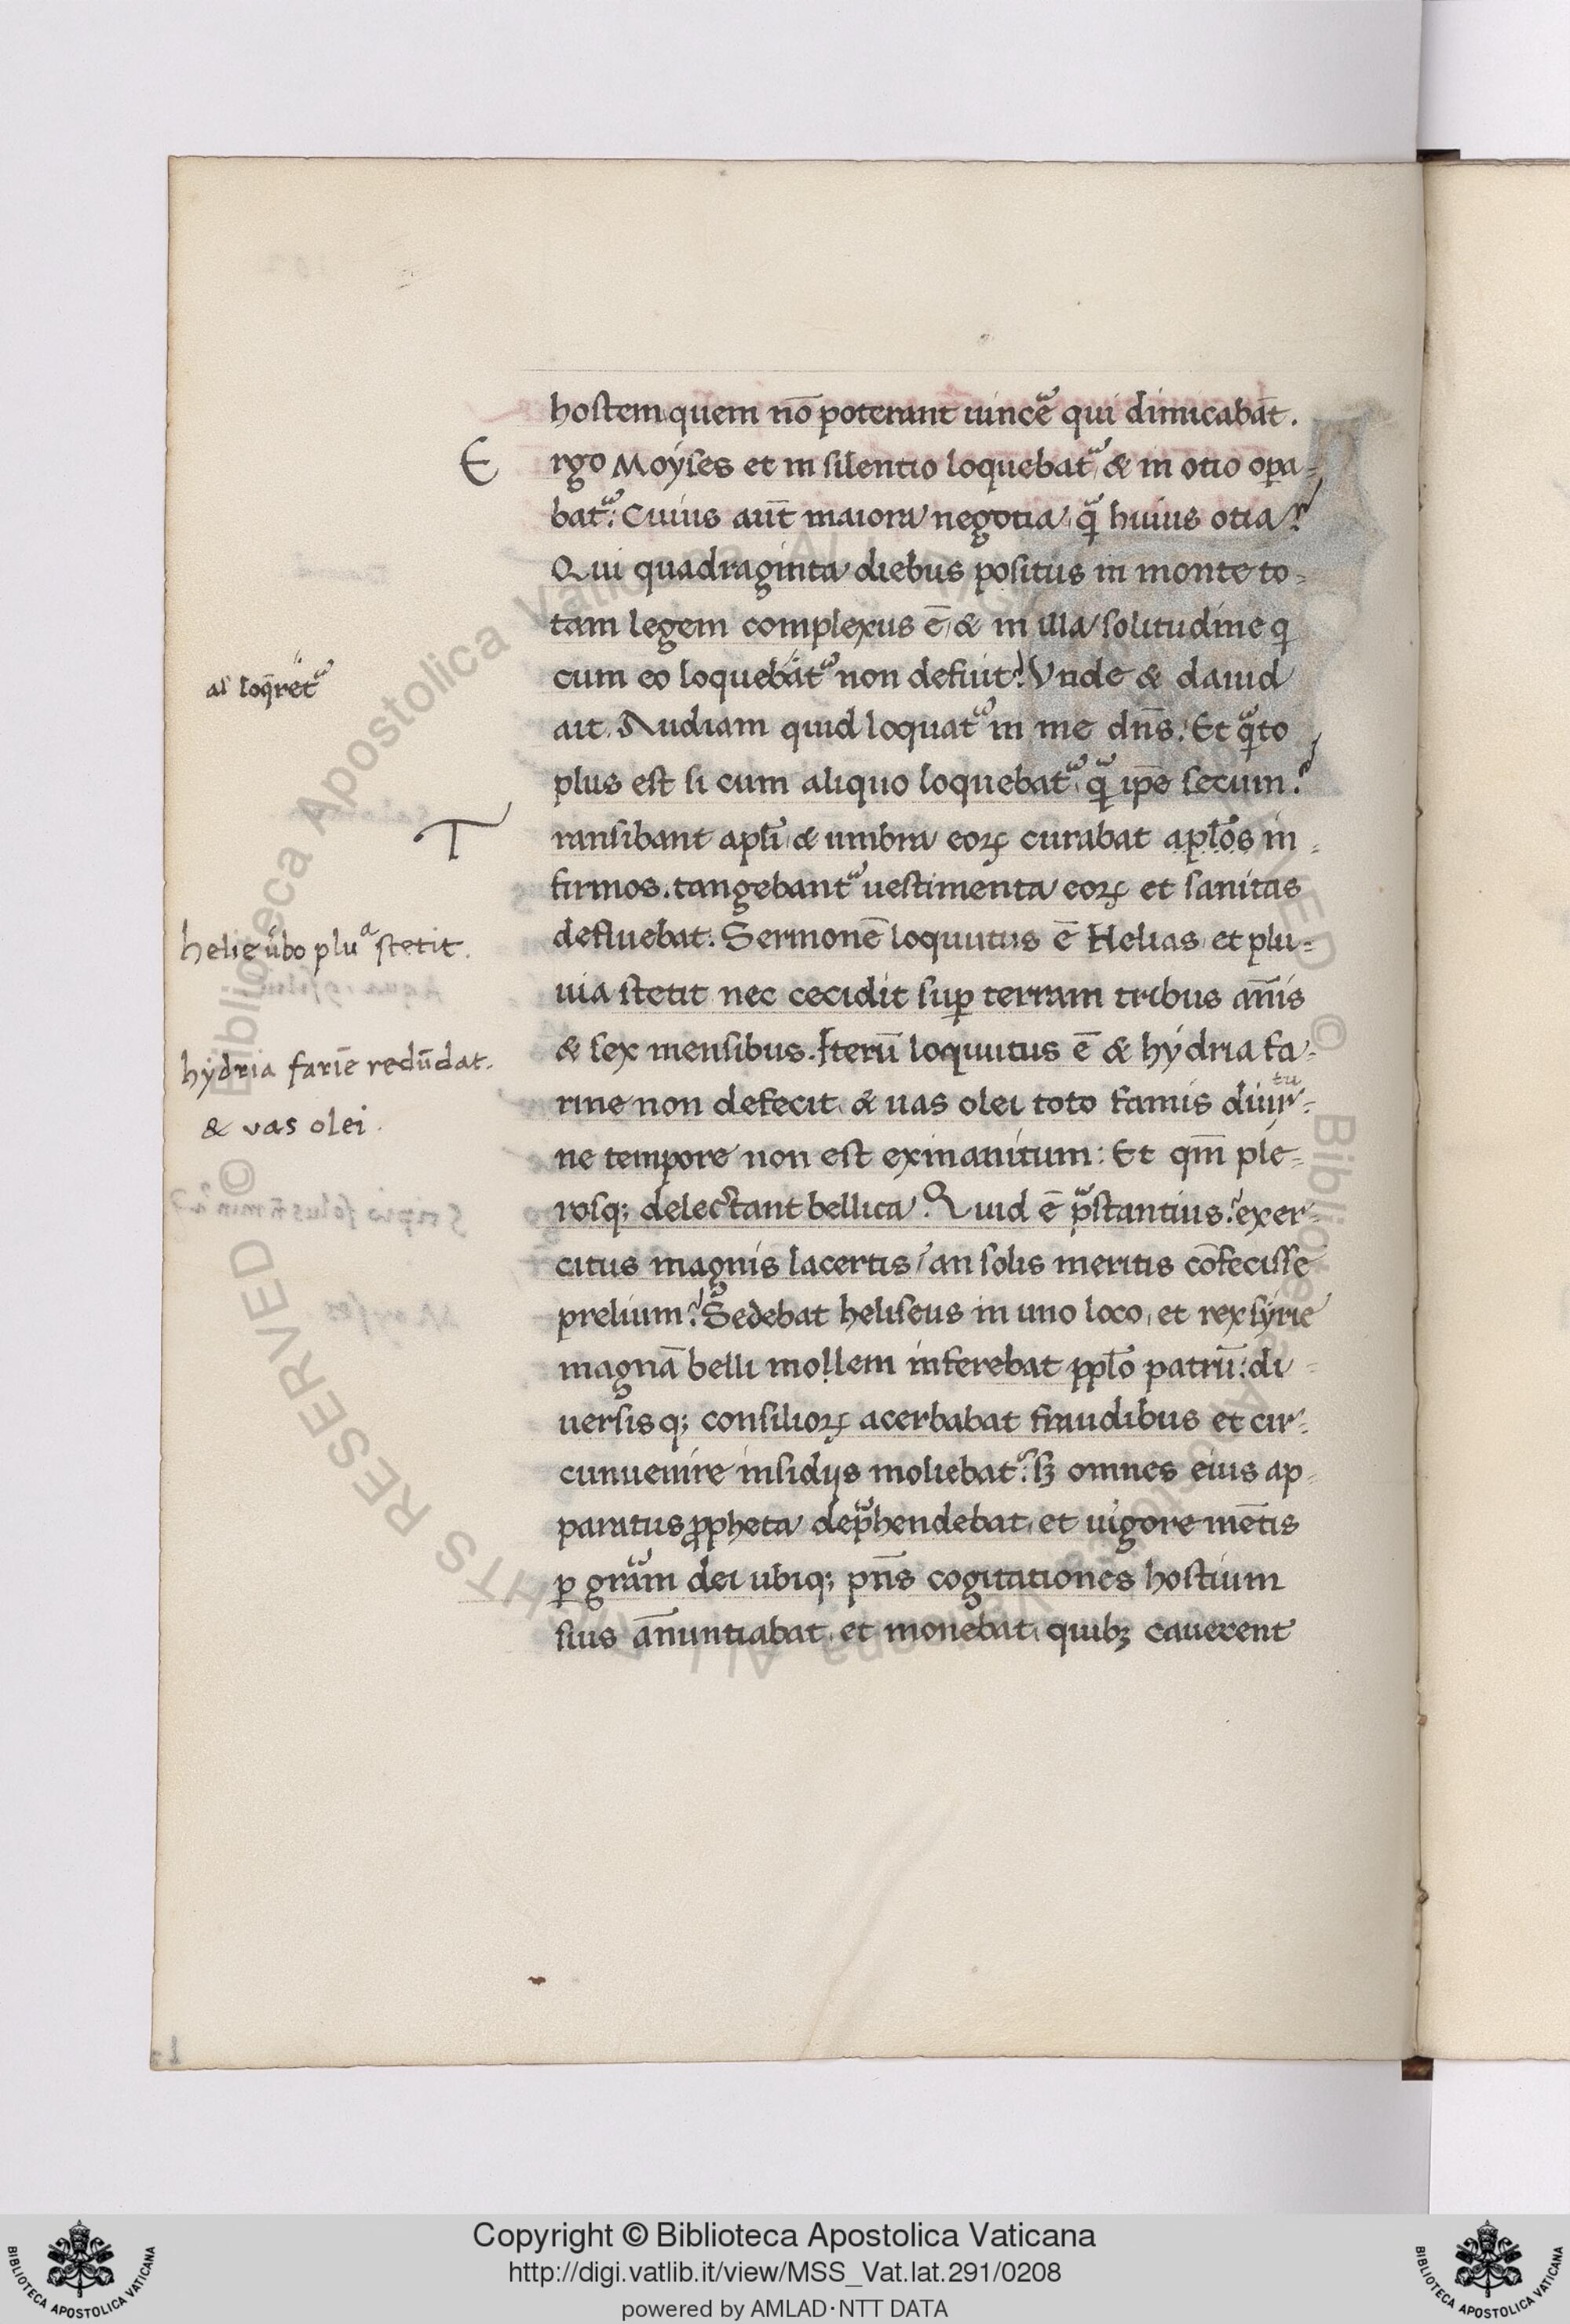 hostem quem nō poterant uincẽ qui dimicabāt.
Ergo Moyses et in silentio loquebatᷣ & in otio oꝑa-
batᷣ: Cuius aūt maiora negotia, qᷓ huius otia?
Qui quadraginta diebus positus in monte to-
tam legem complexus ē, & in illa solitudine q
cum eo loquebatᷣ non defuit? Vnde & dauid
al loqretᷣ
ait. Audiam quid loquatᷣ in me dn̄s: Et qᷓto
plus est si cum aliquo loquebatᷣ, qᷓ ip̄e secum?
Transibant apłi & umbra eoꝝ curabat apłos in-
firmos. tangebantᷣ uestimenta eoꝝ et sanitas
defluebat: Sermonē loquutus ē Helias, et plu-
helie ūbo pluᵃ stetit.
uia stetit nec cecidit suꝑ terram tribus an̄is
& sex mensibus. Iterū loquutus ē & hydria fa-
hydria farīe redūdat.
& vas olei.
rine non defecit, & uas olei toto famis diutur-
ne tempore non est exinanitum: Et qm̄ ple-
rosq; delectant bellica. Quid ē pᷓstantius? exer-
citus magnis lacertis, an solis meritis cōfecisse
prelium? Sedebat heliseus in uno loco, et rex syrie
magnā belli mollem inferebat ppło patrū: di-
uersisq; consilioꝝ acerbabat fraudibus et cir-
cunuenire insidijs moliebatᷣ: sꝫ omnes eius ap-
paratus ꝓpheta depᷓhendebat, et uigore mētis
ꝑ gram̄ dei ubiq; pn̄s cogitationes hostium
suis an̄untiabat, et monebat, quibꝫ cauerent
Copyright © Biblioteca Apostolica Vaticana
http://digi.vatlib.it/view/MSS_Vat.lat.291/0208
powered by AMLAD·NTT DATA
BIBLIOTECA APOSTOLICA VATICANA
BIBLIOTECA APOSTOLICA VATICANA
© Biblioteca Apostolica Vaticana ALL RIGHTS RESERVED © Biblioteca Apostolica Vaticana ALL RIGHTS RESERVED